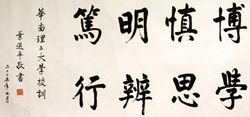 博學
慎思
明辨
篤行
華南理工大学校訓
葉選平敬書
二〇〇五年七月